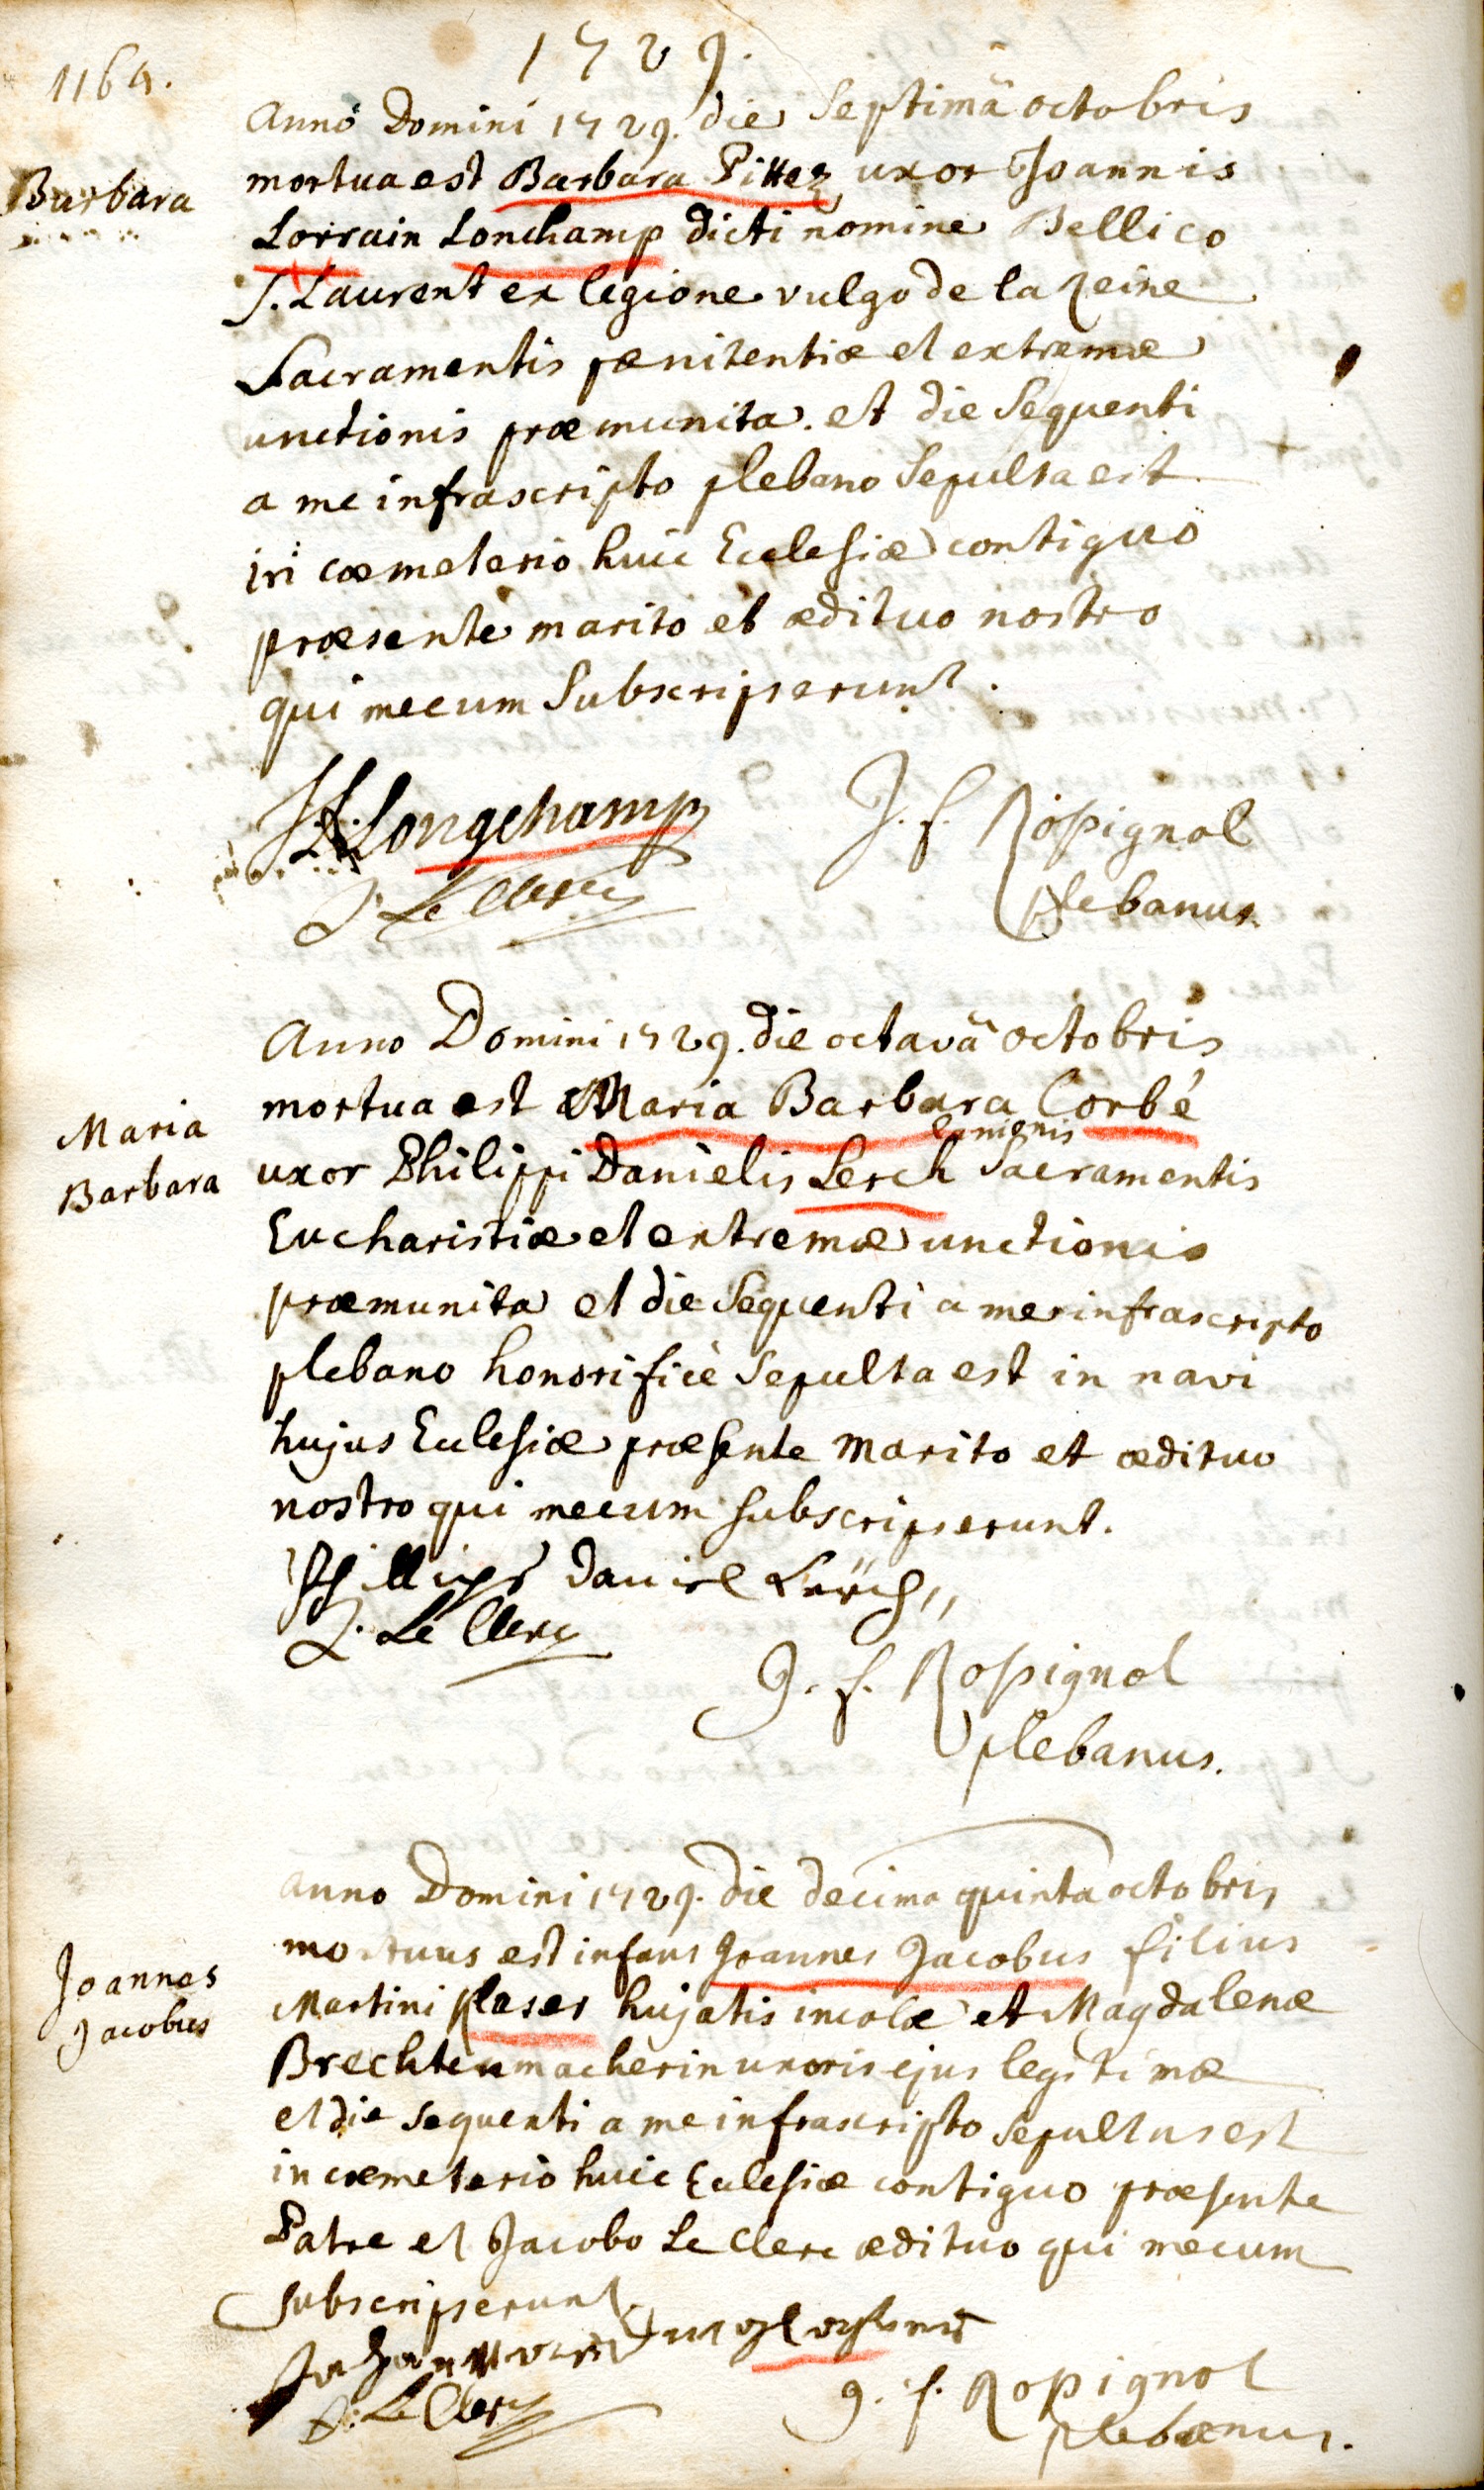 1729.
1164.
Anno Domini 1729. die Septimâ octobris
mortua est Barbara Pittez uxor Joannis
Barbara
Lorrain Lonchamp dicti nomine Bellico
S. Laurent ex legione vulgo de la Reine
Sacramentis pœnitentiæ et extremæ
unctionis præmunita. et die Sequenti
a me infrascripto plebano Sepulta est
in cœmeterio huic Ecclesiæ contiguo
præsente marito et ædituo nostro
qui mecum Subscripserunt.
Longchamp
J. f. Roßignol
J. Le Clerc
plebanus
Anno Domini 1729. die octavâ octobris
mortua est Maria Barbara Corbé
Maria
Barbara
uxor Philippi Danielis Lerch Sacramentis
Eucharistiæ et extremæ unctionis
præmunita et die Sequenti a me infrascripto
plebano honorificè Sepulta est in navi
hujus Eclesiæ præsente marito et ædituo
nostro qui mecum subscripserunt.
Phillips Daniel Lerch
J. Le Clerc
J. f. Roßignol
plebanus.
Anno Domini 1729. die decima quinta octobris
mortuus est infans Joannes Jacobus filius
Joannes
Jacobus
Martini Klaser hujatis incolæ et Magdalenæ
Brechtenmacherin uxoris ejus legitimæ
et die sequenti a me infrascripto sepultus est
in cœmeterio huic Eclesiæ contiguo præsente
Patre et Jacobo Le Clerc ædituo qui mecum
subscripserunt.
J. Le Clerc
J. f. Roßignol
plebanus.